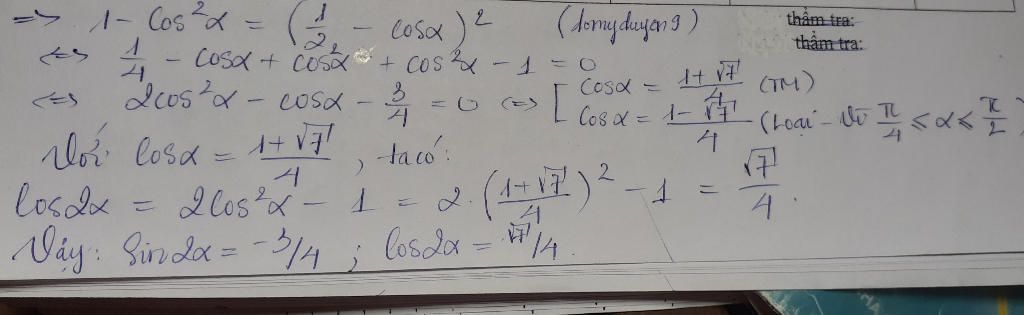 => 1 - cos²α = (1/2 - cosα)² (domyduyen9)
thẩm tra:
thẩm tra:
<=> 1/4 - cosα + cos²α + cos²α - 1 = 0
<=> 2cos²α - cosα - 3/4 = 0 <=> [ cosα = (1+√7)/4 (TM)
cosα = (1-√7)/4 (Loại - Vì π/4 ≤ α ≤ π/2)
Với cosα = (1+√7)/4, ta có:
cos2α = 2cos²α - 1 = 2·((1+√7)/4)² - 1 = √7/4.
Vậy: sin2α = -3/4 ; cos2α = √7/4.